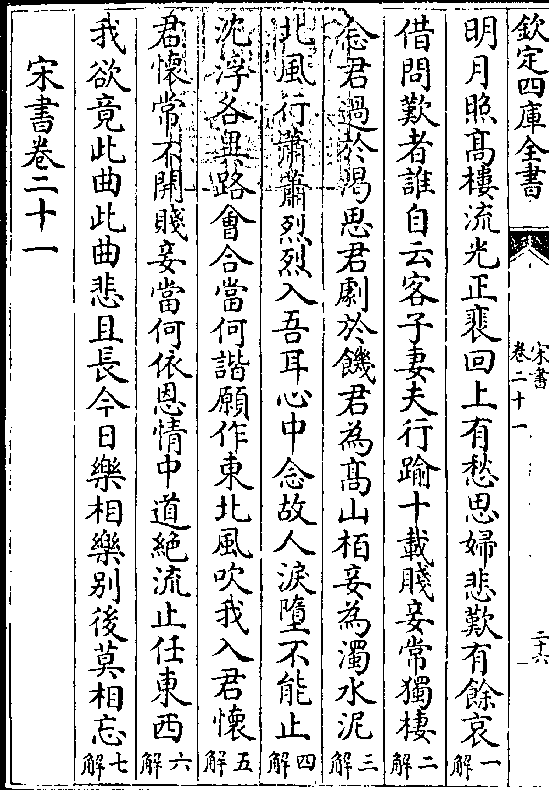 欽定四庫全書
宋書
卷二十一
二十六
明月照髙樓流光正裴回上有愁思婦悲歎有餘哀一解
借問歎者誰自云客子妻夫行踰十載賤妾常獨棲二解
念君過於渇思君劇於饑君為髙山栢妾為濁水泥三解
北風行蕭蕭烈烈入吾耳心中念故人淚墮不能止四解
沈浮各異路會合當何諧願作東北風吹我入君懐五解
君懐常不開賤妾當何依恩情中道絶流止任東西六解
我欲竟此曲此曲悲且長今日樂相樂别後莫相忘七解
宋書卷二十一